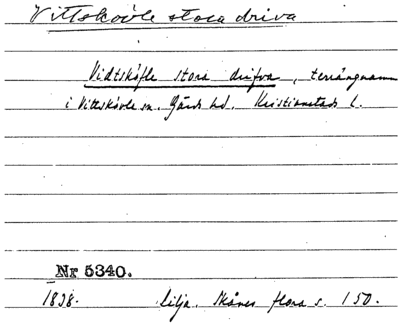 Vittskövle stora driva
Vidtsköfle stora drifva, terrängnamn
i Vittskövle sn. Gärds hd. Kristianstads l.
Nr 5340.
1838. Lilja. Skånes flora s. 150.